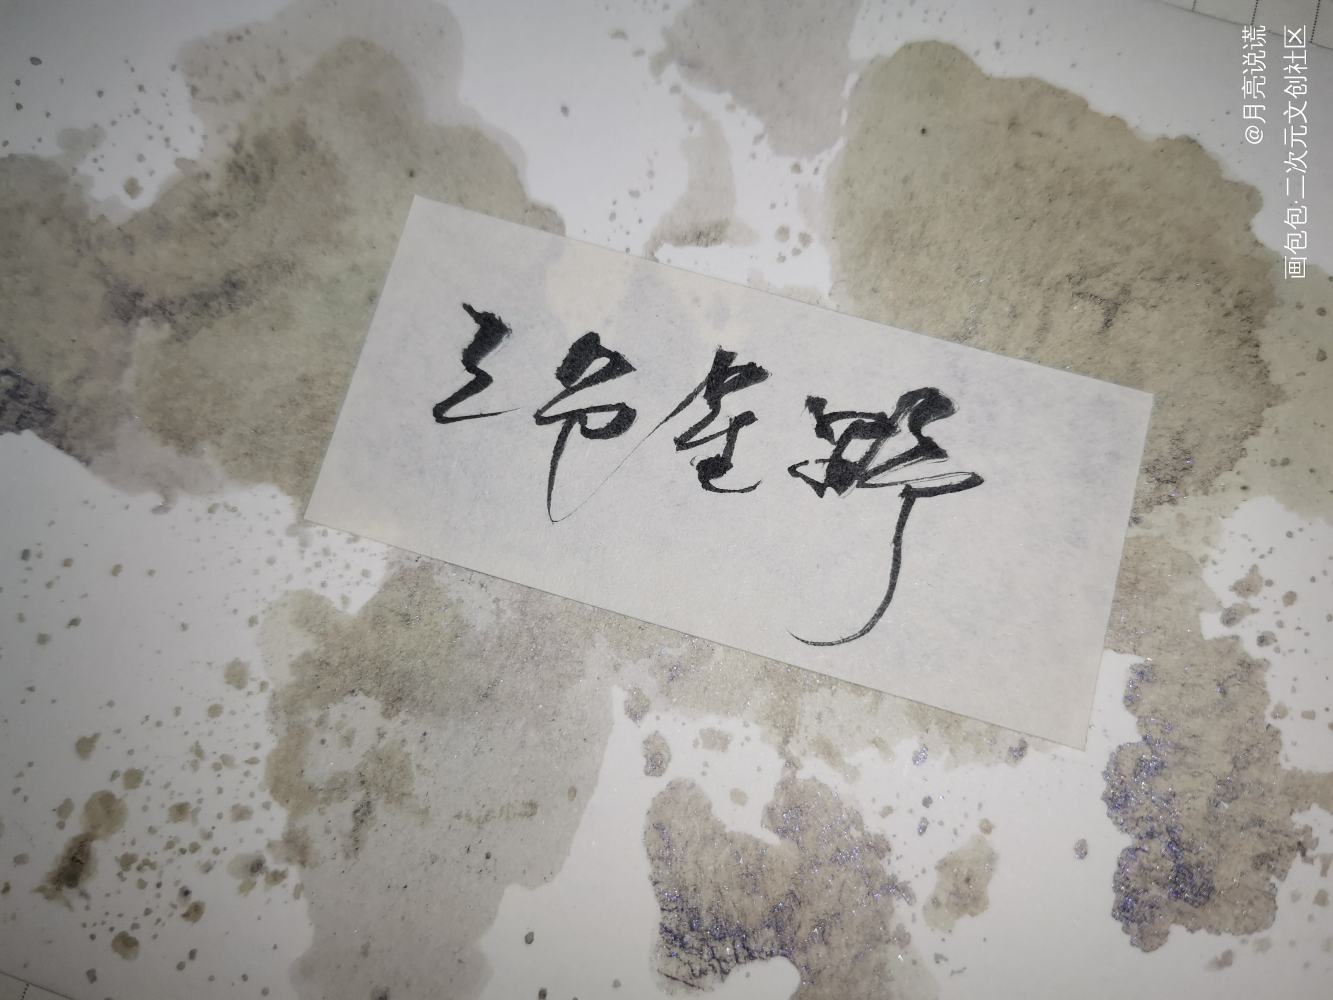 三节星野
@月亮说谎
画包包·二次元文创社区